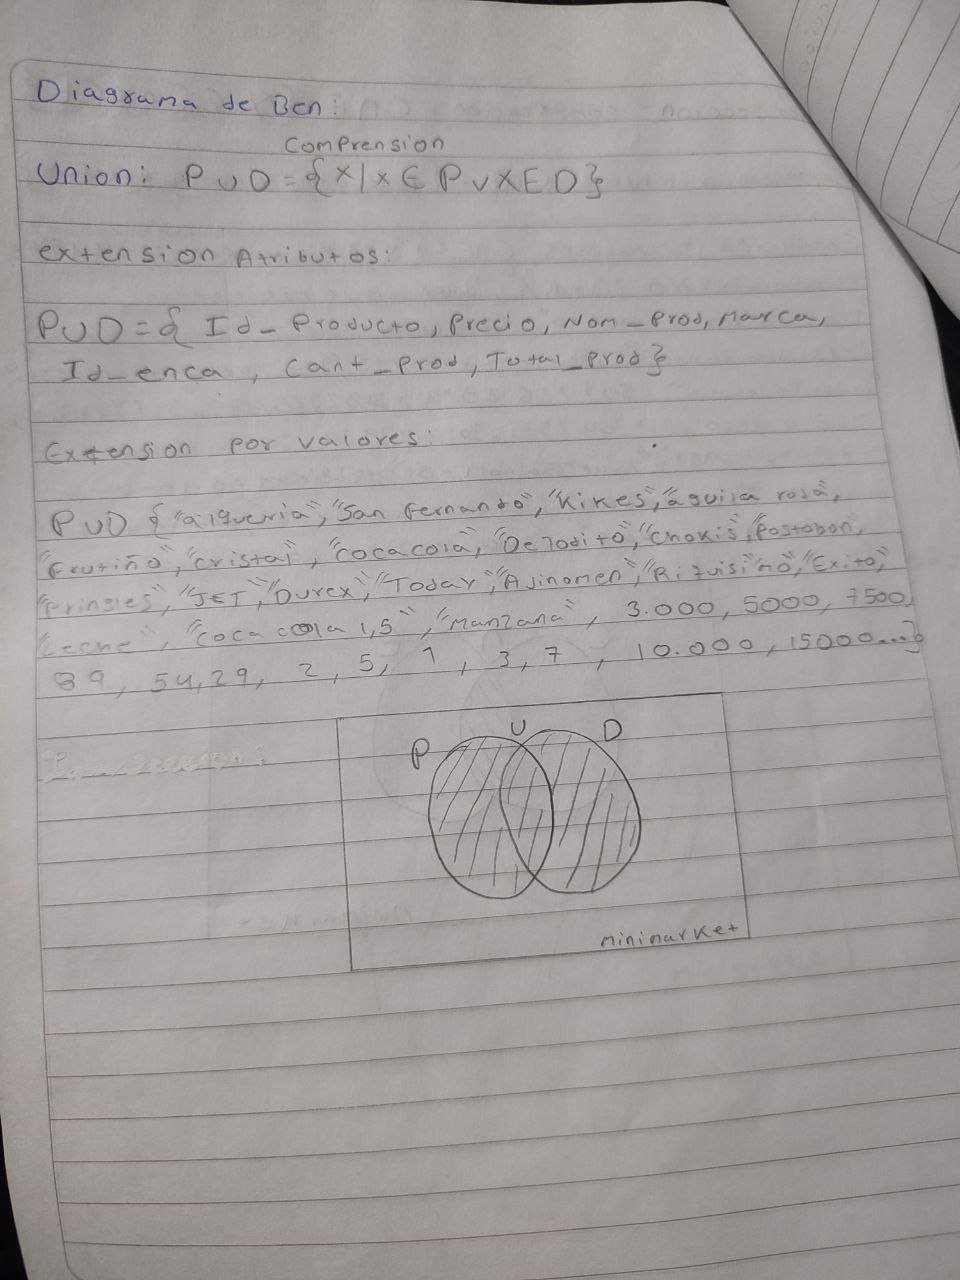 Diagrama de Ben:
Comprension
Union: P ∪ D = {x/x ∈ P ∨ x ∈ D}
extension Atributos:
P∪D = { Id_Producto, Precio, Nom_Prod, Marca,
Id_enca, Cant_Prod, Total_Prod}
Extension por valores:
P∪D { "alqueria", "San Fernando", "Kikes", "aguila roja",
"Frutiño", "cristal", "Cocacola", "De Todito", "Chokis", "Postobon",
"Pringles", "JET", "Durex", "Today", "Ajinomen", "Riquisimo", "Exito",
"Leche", "Coca cola 1,5", "Manzana", 3.000, 5000, 7500,
89, 54, 29, 2, 5, 1, 3, 7, 10.000, 15000...}
P U D
minimarket